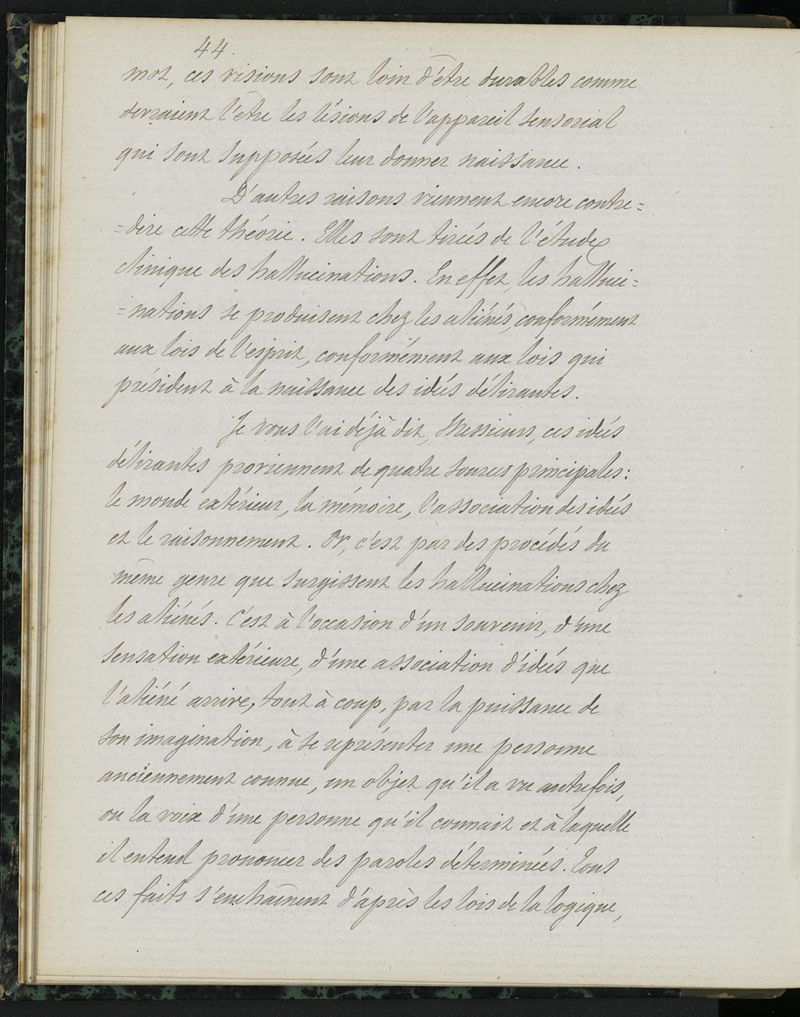 44.
mot, ces visions sont loin d'être durables comme
devraient l'être les lésions de l'appareil sensorial
qui sont supposées leur donner naissance.
D'autres raisons viennent encore contre=
=dire cette théorie. Elles sont tirées de l'étude
clinique des hallucinations. En effet, les halluci=
=nations se produisent chez les aliénés, conformément
aux lois de l'esprit, conformément aux lois qui
président à la naissance des idées délirantes.
Je vous l'ai déjà dit, Messieurs, ces idées
délirantes proviennent de quatre sources principales:
le monde extérieur, la mémoire, l'association des idées
et le raisonnement. Or, c'est par des procédés du
même genre que surgissent les hallucinations chez
les aliénés. C'est à l'occasion d'un souvenir, d'une
sensation extérieure, d'une association d'idées que
l'aliéné arrive, tout à coup, par la puissance de
son imagination, à se représenter une personne
anciennement connue, un objet qu'il a vu autrefois,
ou la voix d'une personne qu'il connait et à laquelle
il entend prononcer des paroles déterminées. Tous
ces faits s'enchaînent d'après les lois de la logique,